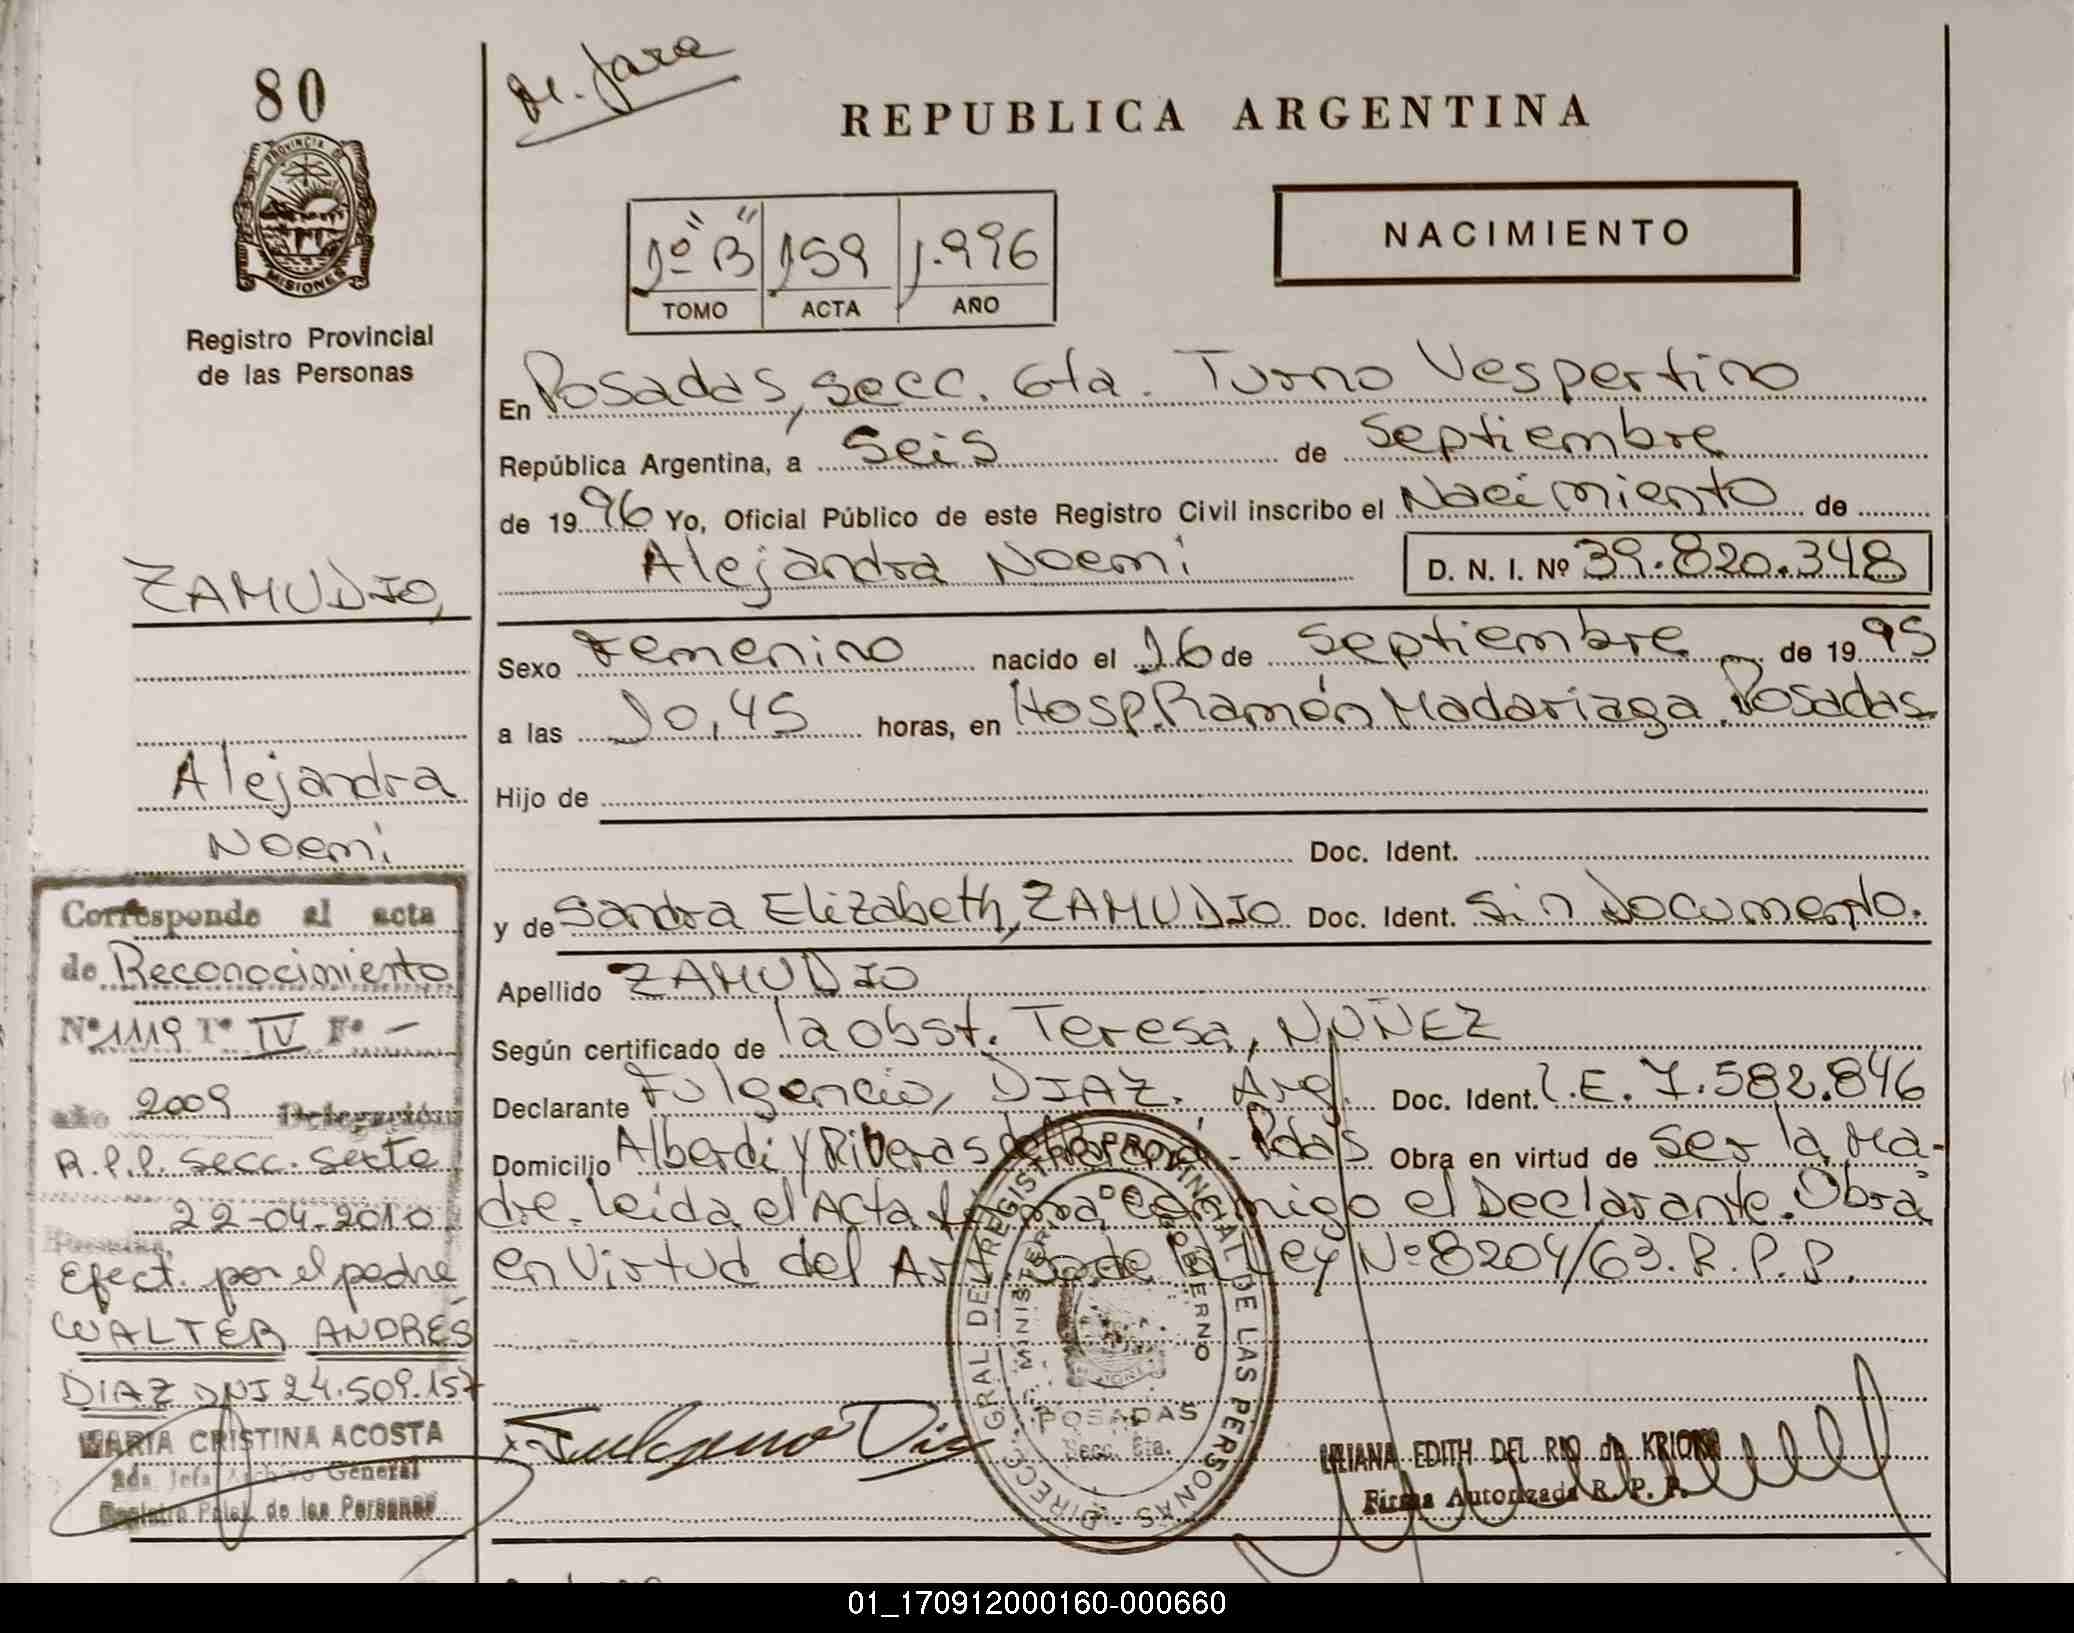 80
PROVINCIA DE
MISIONES
Registro Provincial
de las Personas
REPUBLICA ARGENTINA
NACIMIENTO
1º "B" 159 1.996
TOMO ACTA AÑO
En Posadas, secc. 6ta. Turno Vespertino
República Argentina, a seis de septiembre
de 1996 Yo, Oficial Público de este Registro Civil inscribo el Nacimiento de
Alejandra Noemi D. N. I. Nº 39.820.348
Sexo Femenino nacido el 16 de septiembre de 1995
a las 10,45 horas, en Hosp. Ramón Madariaga. Posadas.
Hijo de
Doc. Ident.
y de Sandra Elizabeth, ZAMUDIO Doc. Ident. Sin Documento.
Apellido ZAMUDIO
Según certificado de la obst. Teresa, NUÑEZ
Declarante Fulgencio, DIAZ. Arg. Doc. Ident. L.E. 7.582.846
Domicilio Alberdi y Riveras del Paraná - Pdas Obra en virtud de ser la Ma-
dre. Leida el Acta firma conmigo el Declarante. Obra
en Virtud del Art. de la Ley Nº 8204/63. R. P. P.
DIRECC. GRAL DEL REGISTRO PROVINCIAL DE LAS PERSONAS
MINISTERIO DE GOBIERNO
POSADAS
Secc. 6ta.
LILIANA EDITH DEL RIO de
Firma Autorizada R. P. P.
ZAMUDIO,
Alejandra
Noemi
Corresponde al acta
de Reconocimiento
Nº 1119 Tº IV Fº -
año 2009 Delegación
R.P.P. secc. sexta
22-04-2010
Efect. por el padre
WALTER ANDRÉS
DIAZ DNI 24.509.157
MARIA CRISTINA ACOSTA
Jefa Archivo General
Registro Pcial. de las Personas
01_170912000160-000660